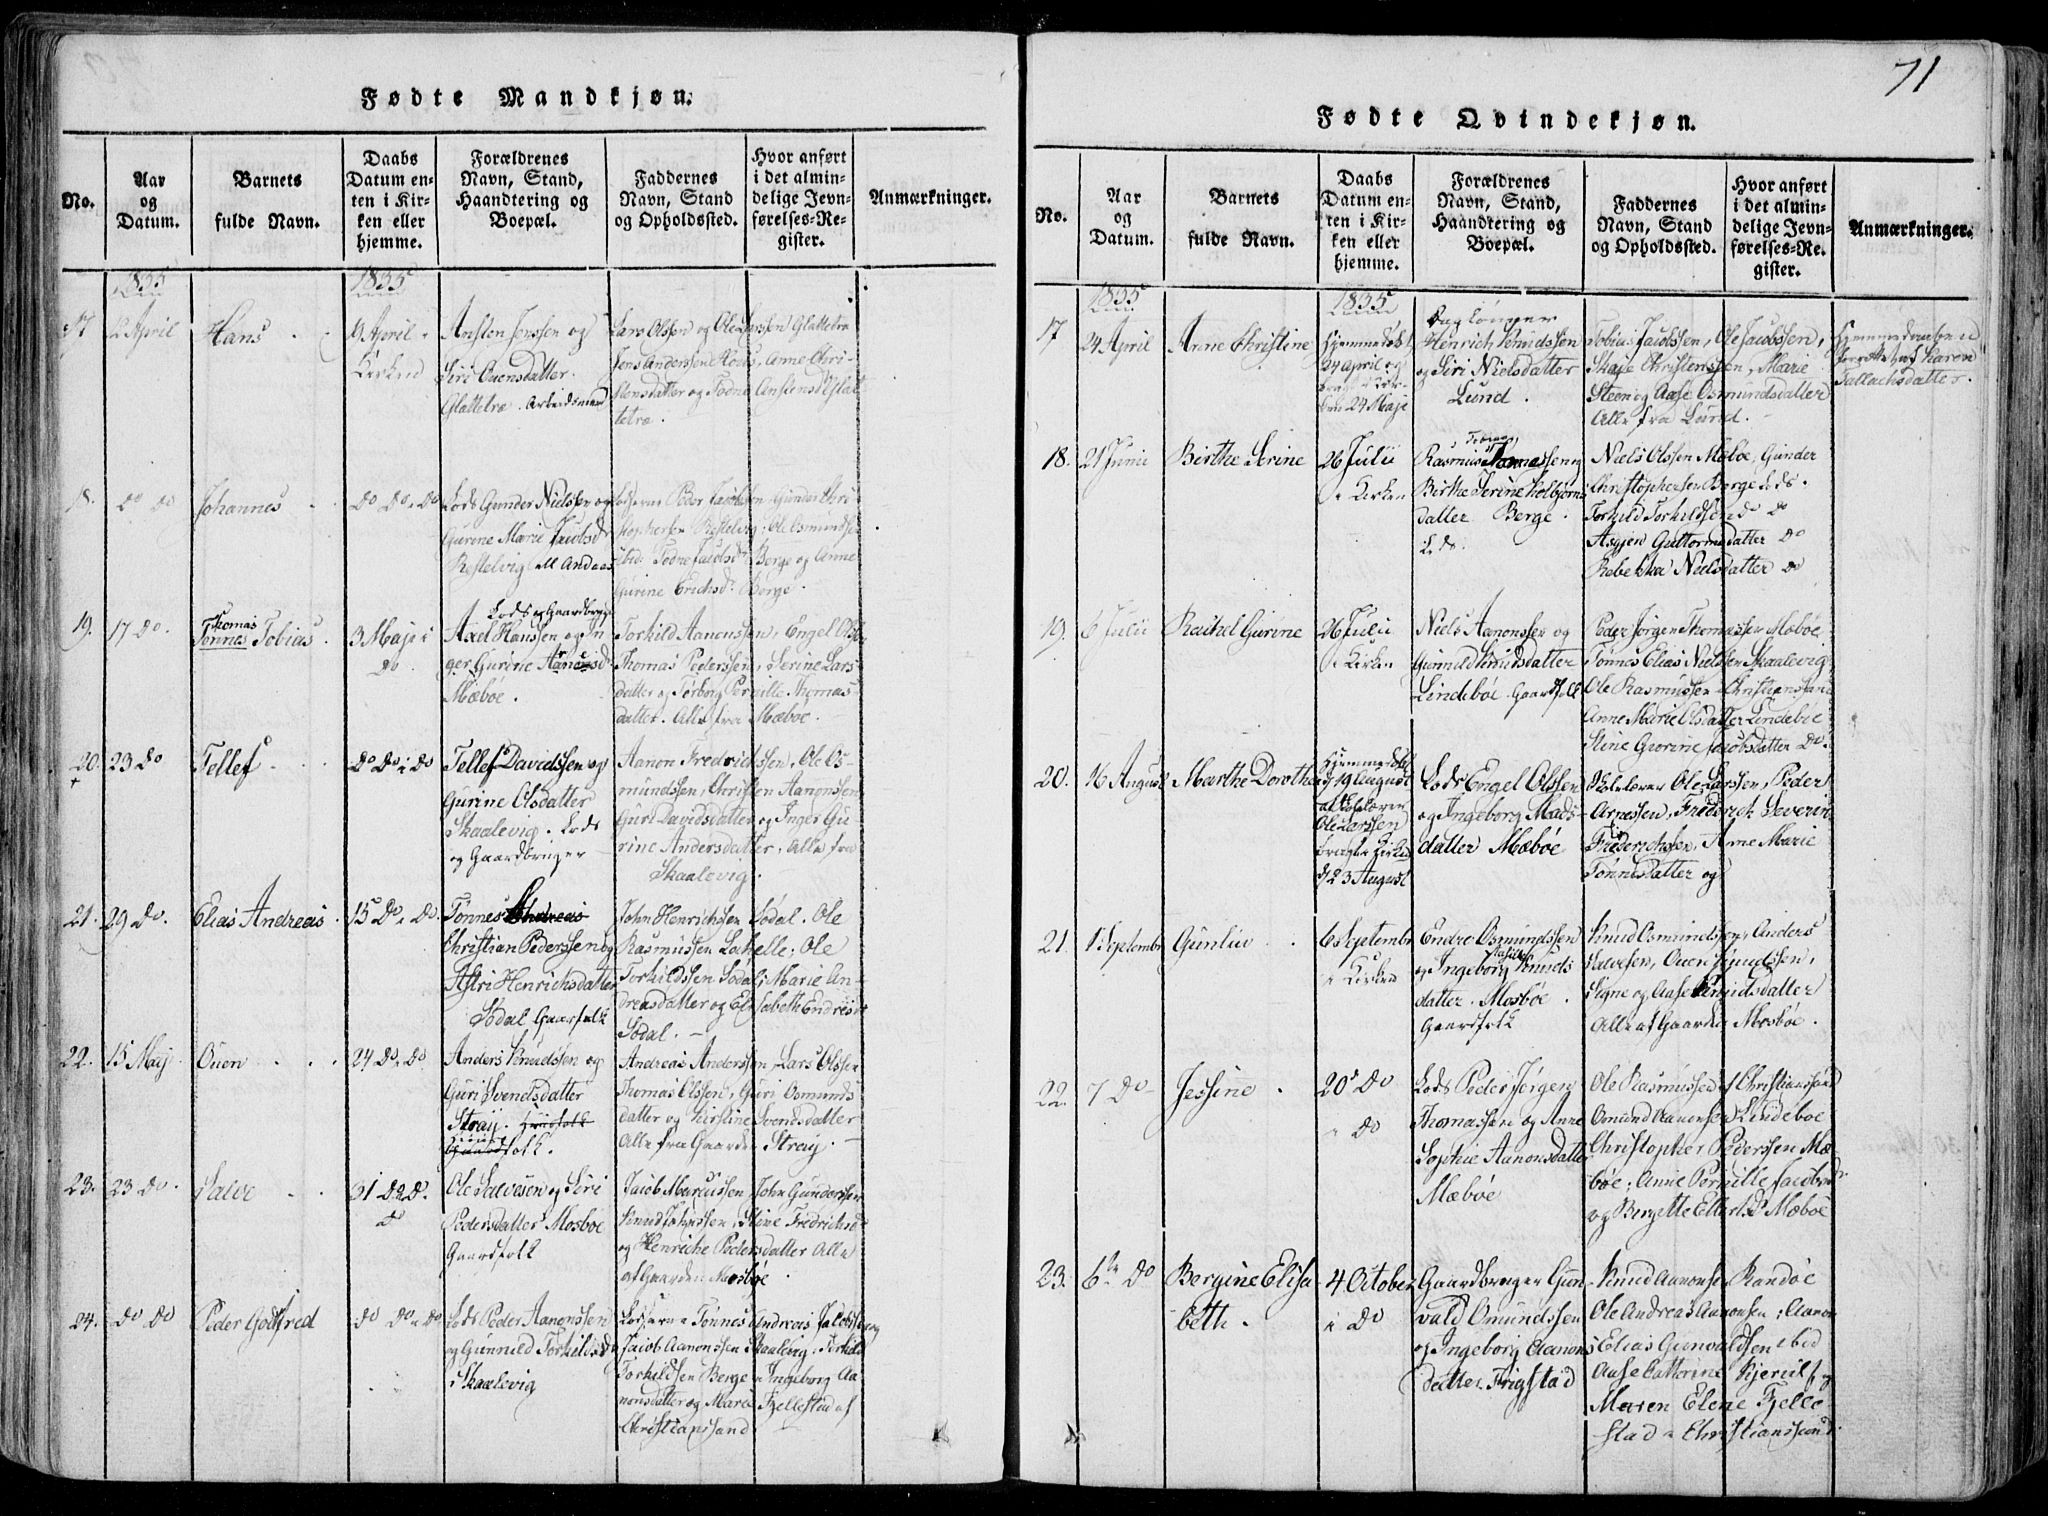 71
Fødte Mandkjøn.
No.
Aar
og
Datum.
Barnets
fulde Navn.
Daabs
Datum en-
ten i Kir-
ken eller
hjemme.
Forældrenes
Navn, Stand,
Haandtering og
Boepæl.
Faddernes
Navn, Stand
og Opholdssted.
Hvor anført
i det almin-
delige Jevn-
førelses-Re-
gister.
Anmærkninger.
1835
1835
17
12 April
Hans
9 April
Kirken
Ansten Jenssen og
Siri Ouensdatter.
Glattetræ. Arbeidsmand
Lars Olssen og Ole Larssen Glattetræ
Jens Anderssen, Anne Chri-
stensdatter og Todne Anstensd. Glat
tetræ.
18.
do do
Johannes
do do i do
Lods Gunder Nielssen og
Gurine Marie Jacobsd.
Restelvig
Lodserne Peder Jacobsen Gunder Chri-
stophersen Restelvig: Ole Osmundsen
ibid. Todne Jacobsd. Berge og Anne
Gurine Erichsd. Berge.
19.
17 do.
Thomas
Tønnes Tobias.
3 Maji i
do
Lods og Gaardbruger
Axel Hanssen og In
ger Gurine Aanensd.
Mæbøe.
Torkild Aanonssen, Engel Olss
Thomas Pederssen, Serine Lars
datter og Torborg Pernille Thomas
datter. Alle fra Mæbøe.
20.
23 do
Tellef
do do i do
Tellef Davidssen og
Gurine Olsdatter
Skaalevig. Lods
og Gaardbruger
Aanon Fredrichssen, Ole Os-
mundssen, Christen Aanonssen
Guri Davidsdatter og Inger Gu-
rine Andersdatter. Alle fra
Skaalevig.
21.
29 do.
Elias Andreas
15 do i do.
Tønnes Andreas
Christian Pederssen og
Astri Henrichsdatter
Sødal Gaarfolk
John Henrichssen Sødal. Ole
Rasmussen Lochelle; Ole
Torkildssen Sødal; Marie An-
dreasdatter og Elisabeth Endresd.
Sødal.
22.
15 Maj
Ouen
24 do i do
Anders Knudssen og
Guri Svendsdatter
Straij.
folk.
Andreas Anderssen, Lars Olssen
Thomas Olssen, Guri Osmunds
datter og Kirstine Svendsdatter
Alle fra Gaarden Straij.
23.
23 do.
Salve
31 do do.
Ole Salvesen og Siri
Pedersdatter Mosbøe
Gaardfolk
Jacob Marcussen, John Gunderssen
Knud Johnssen, Stine Fredrichsd.
og Henriche Pedersdatter Alle
af Gaarden Mosbøe.
24.
do do
Peder Godtfred
do do i do
Lods Peder Aanonssen
og Gunnild Torkildsd.
Skaalevig
Lodserne Tønnes Andreas Jacobssen og
Jacob Aanonssen Skaalevig; Torkild
Torkildsen Berge Ingeborg Aa-
nonsdatter og Marie Fjellestad af
Christianssand
Fødte Qvindekjøn.
No.
Aar
og
Datum.
Barnets
fulde Navn.
Daabs
Datum en-
ten i Kir-
ken eller
hjemme.
Forældrenes
Navn, Stand,
Haandtering og
Boepæl.
Faddernes
Navn, Stand
og Opholdssted.
Hvor anført
i det almin-
delige Jevn-
førelses-Re-
gister.
Anmærkninger.
1835
1835
17
24 April
Anne Christine
Hjemmedøbt
24 April og
ken 24 Maji
Dagløhner
Henrich Knudssen
og Siri Nielsdatter
Lund.
Tobias Jacobssen, Ole Jacobssen,
Skaje Christenssen, Marie
Steen og Aase Osmundsdatter
Alle fra Lund.
Hjemmedaaben
forrettet af Karen
Tallachsdatter.
18.
21 Junii
Birthe Serine
26 Julii
i Kirken
Rasmus
Birthe Serine Kolbjørns
datter Berge.
Lods.
Niels Olssen Mæbøe, Gunder
Christophersen Berge Lods.
Torkild Torkildsen do do
Asgjen Guttormsdatter do
Rebekka Nielsdatter do
19.
6 Julii
Rachel Gurine
26 Julii
i Kirken
Niels Aanonssen og
Gunnild Knudsdatter
Lindebøe Gaardfolk
Peder Jørgen Thomassen Mæbøe
Tønnes Elias Nielssen Skaalevig
Ole Rasmussen Christianssand
Anne Marie Olsdatter Lindebøe
Stine Gurine Jacobsdatter do.
20.
16 August
Marthe Dorothea
Hjemmedøbt
d 19 August
af Skolelæreren
Ole Larssen
bragt i Kirken
d 23 August
Lods Engel Olssen
og Ingeborg Mads-
datter Mæbøe
Skolelærer Ole Larssen, Peder
Arnessen, Frederich Severin
Frederichsen, Anne Marie
Tønnesdatter og
21.
1 Septembr
Gunliv
6 Septembr
i Kirken
Endre Osmundssen
og Ingeborg Knuds
datter. Mosbøe.
Gaardfolk
Knud Osmundssen, Anders
Salvesen, Ouen Knudssen,
Signe og Aase Knudsdatter
Alle af Gaarden Mosbøe.
22.
7 do
Jessine
20 do
i do
Lods Peder Jørgen
Thomassen og Anne
Sophie Aanonsdatter
Mæbøe
Ole Rasmussen af Christianssand
Omund Aanonsen Lindebøe
Christopher Pederssen Mæ-
bøe; Anne Pernille Jacobsd.
og Bergette Ellertsd. Mæbøe
23.
6te do
Bergine Elisa
beth.
4 October
i do
Gaardbruger Gun
vald Omundssen
og Ingeborg Aanons
datter Frigstad
Knud Aanonsen Randøe
Ole Andreas Aanonsen; Aanon
Elias Gunvaldsen ibid
Aase Cattrine Kjerulf og
Maren Elene Fjelle
stad i Christianssand.